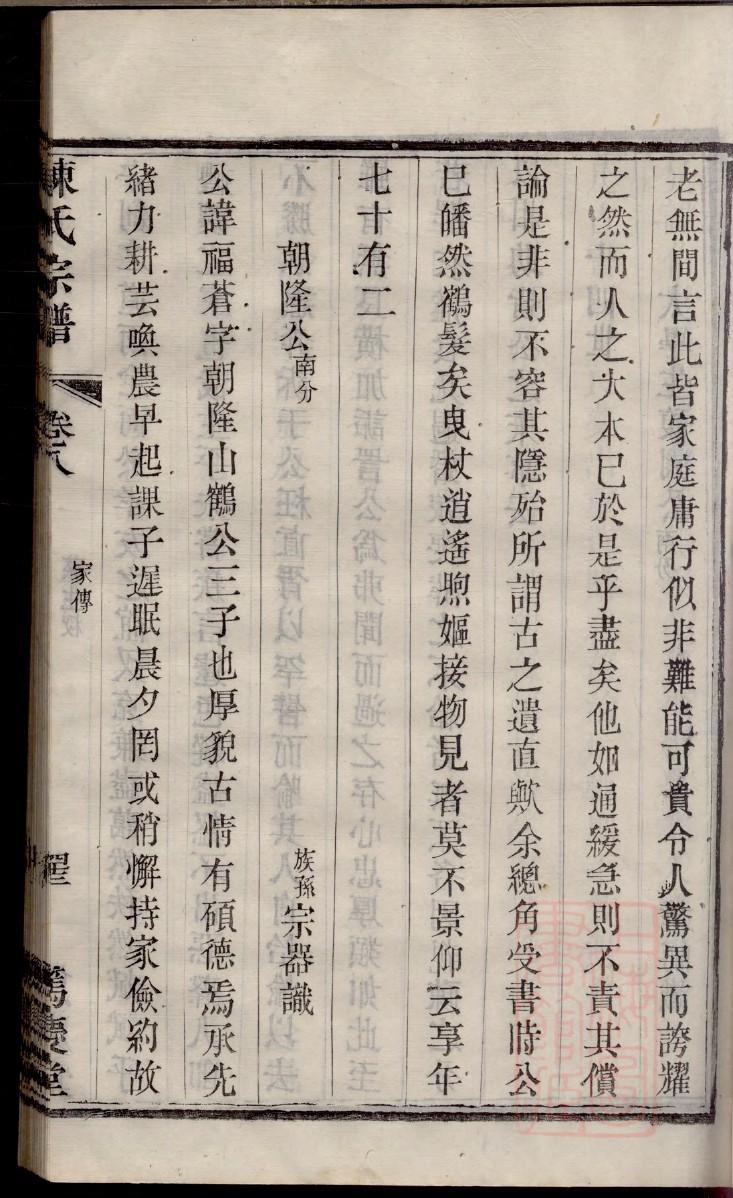 老無間言此皆家庭庸行似非難能可貴令人驚異而誇耀
之然而人之大本已於是乎盡矣他如通緩急則不責其償
論是非則不容其隱殆所謂古之遺直歟余總角受書時公
已皤然鶴髮矣曳杖逍遙煦嫗接物見者莫不景仰云享年
七十有二
朝隆公南分
族孫宗器識
公諱福蒼字朝隆山鶴公三子也厚貌古情有碩德焉承先
緒力耕芸喚農早起課子遲眠晨夕罔或稍懈持家儉約故
陳氏宗譜
卷八
家傳
篤慶堂